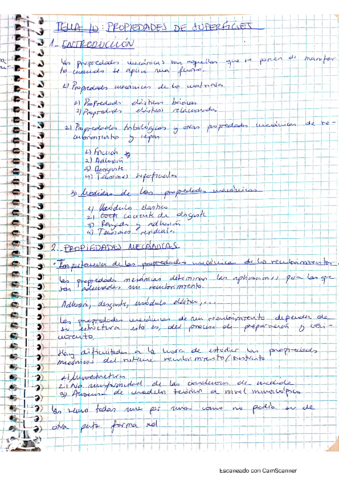 TEMA 10: PROPIEDADES DE SUPERFICIES
1_ INTRODUCCIÓN
Las propiedades mecánicas son aquellas que se ponen de manifies-
to cuando se aplica una fuerza.
1) Propiedades mecánicas de los
a) Propiedades elásticas básicas
b) Propiedades elásticas relacionadas
2) Propiedades tribológicas y otras propiedades mecánicas de re-
cubrimientos y capas
1) Fricción
2) Adhesión
3) Desgaste
4) Tensiones superficiales
3) Medidas de las propiedades mecánicas
1) Módulo elástico
2) coef. de desgaste
3) y adhesión
4) Tensiones residuales
2_ PROPIEDADES MECÁNICAS
Importancia de las propiedades mecánicas de los recubrimientos
Las propiedades mecánicas determinan las aplicaciones para las que
son adecuados un recubrimiento.
Adhesión, desgaste, módulo elástico, ...
Las propiedades mecánicas de un recubrimiento dependen de
su estructura esto es, del proceso de preparación y
Hay dificultades a la hora de estudiar las propiedades
mecánicas del sistema recubrimiento/sustrato
1)
2) No uniformidad de las condiciones de medida
3) Ausencia de modelos teóricos a nivel
Las veremos todas una por una como no podía ser de
otra puta forma
Escaneado con CamScanner